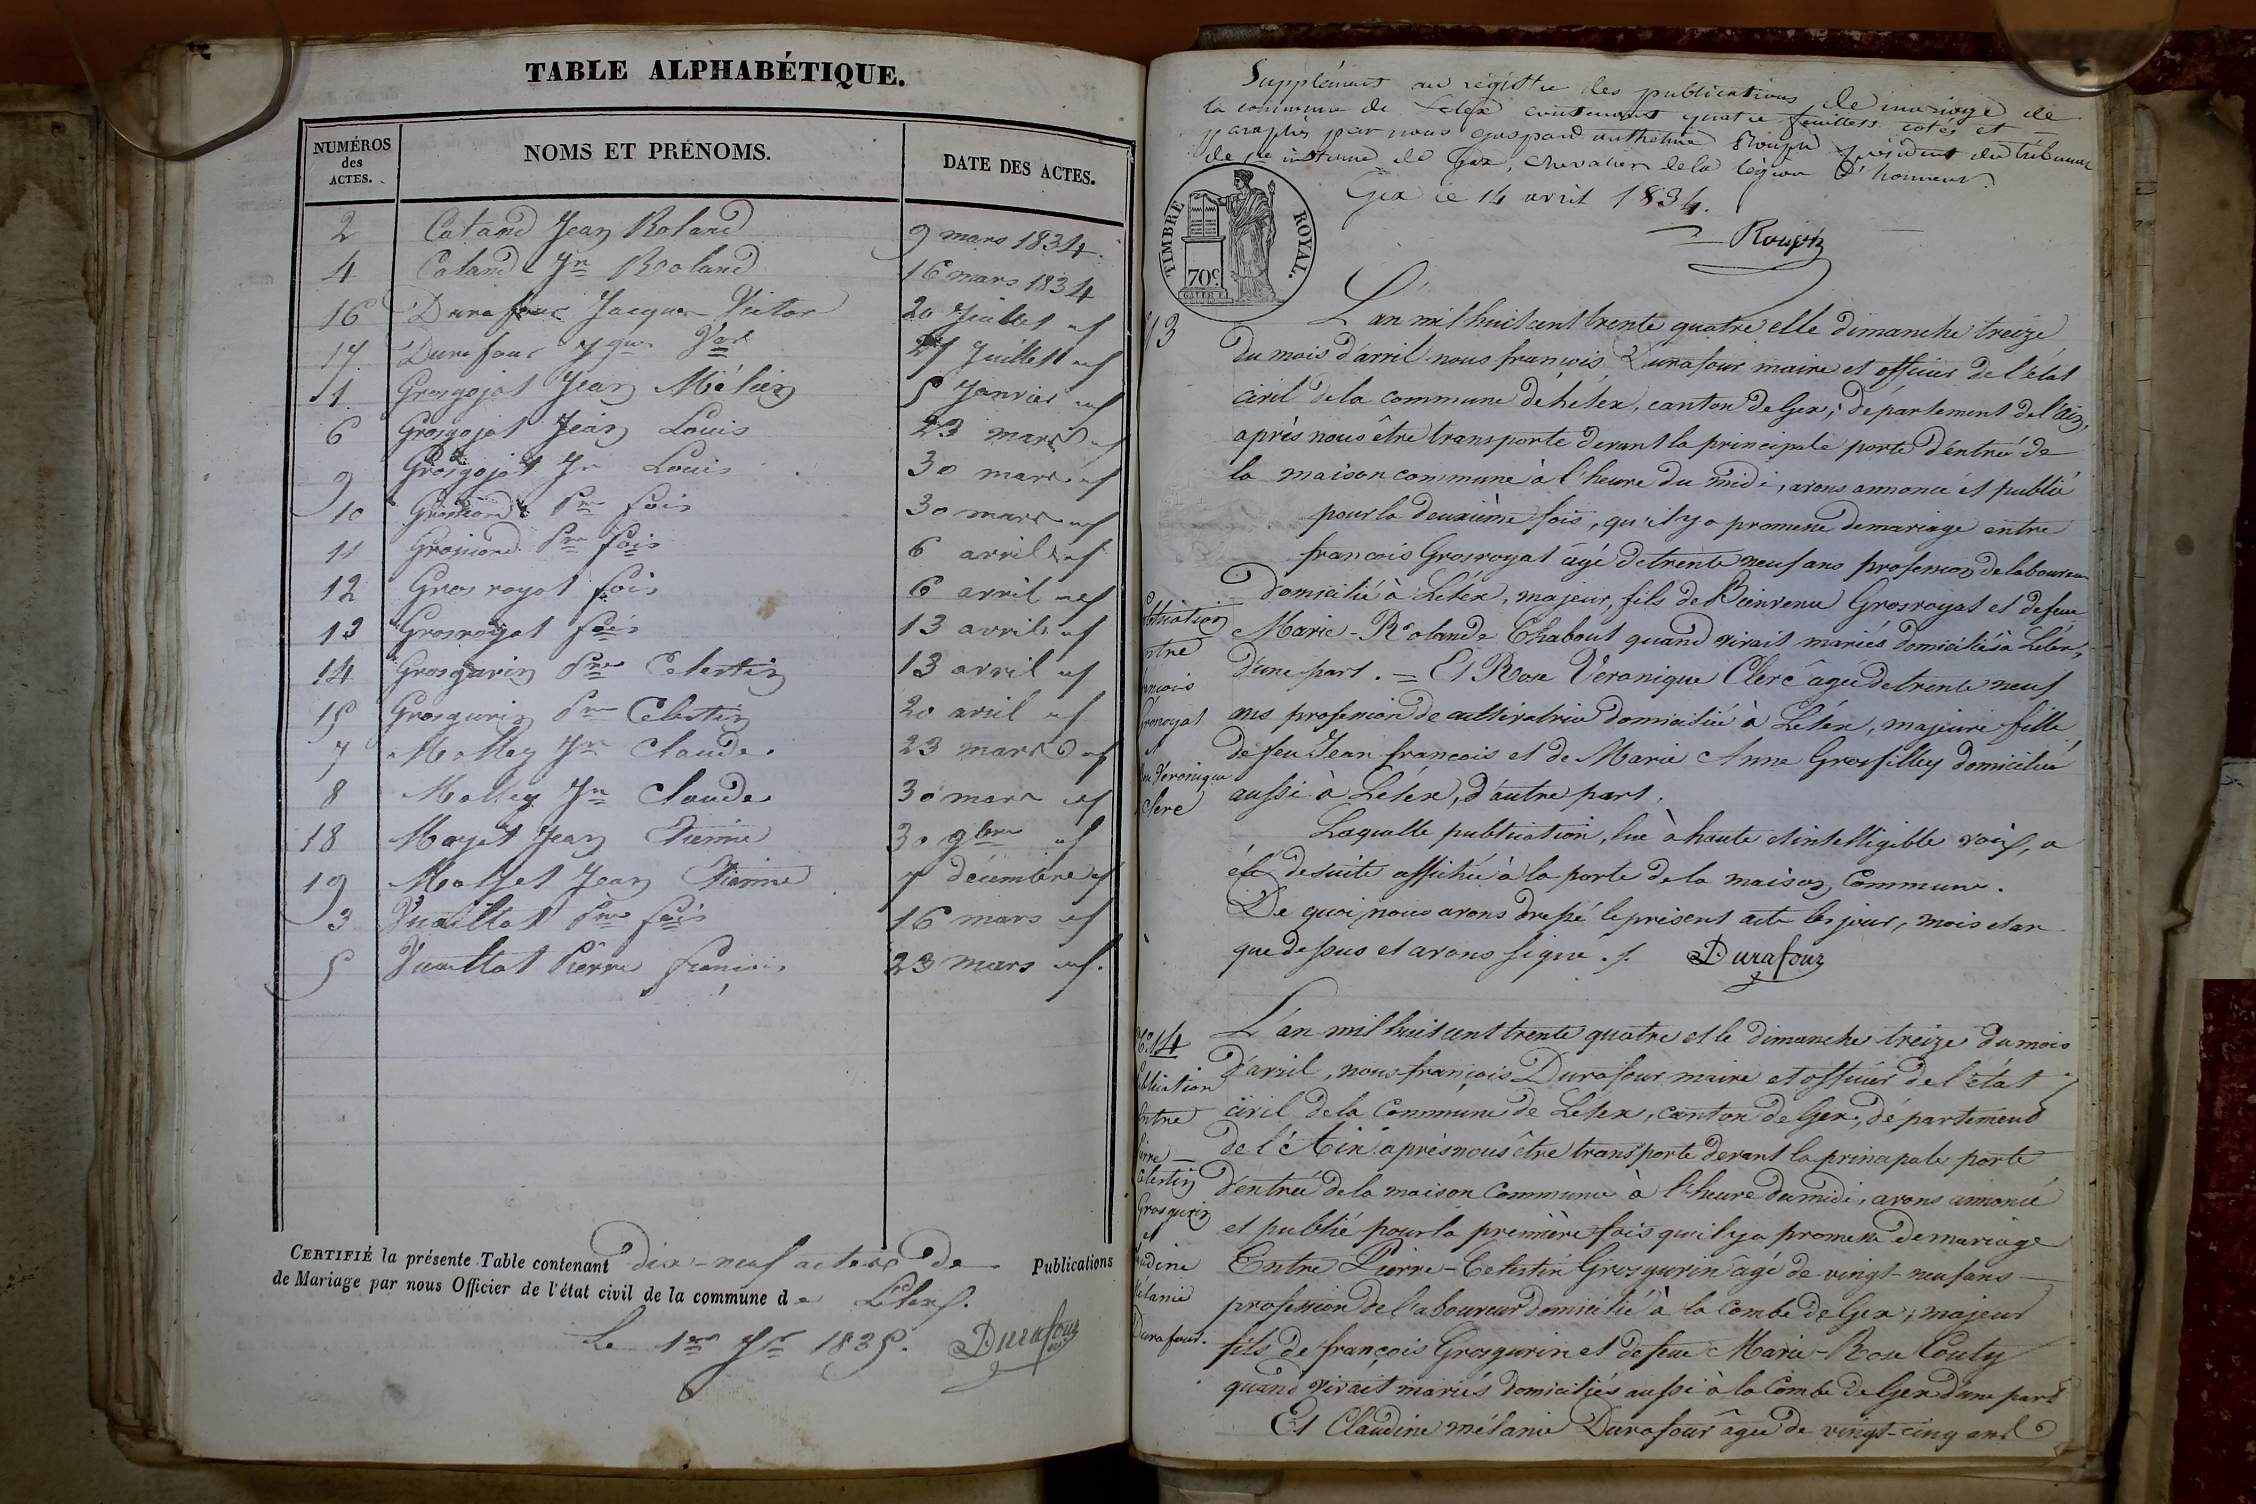 TABLE ALPHABÉTIQUE.
NUMÉROS des ACTES. NOMS ET PRÉNOMS. DATE DES ACTES.
2 Catand Jean Roland 9 mars 1834.
4 Catand Jn Roland 16 mars 1834
16 Durafour Jacques Victor 20 Juillet
17 Durafour Jques Vor 27 Juillet
1 Grosgojat Jean Mélin 5 Janvier
6 Grosgojat Jean Louis 23 mars
9 Grosgojat Jn Louis 30 mars
10 Pre fois 30 mars
11 Pre fois 6 avril
12 Grosroyat fois 6 avril
13 Grosroyat fois 13 avril
14 Grosgurin Pre Celestin 13 avril
15 Grosgurin Pre Celestin 20 avril
7 Molley Jn Claude 23 mars
8 Molley Jn Claude 30 mars
18 Mojet Jean Etienne 30 9bre
19 Jean Etienne 7 décembre
3 Vuaillat Pre fois 16 mars
5 Vuaillat Pierre françois 23 mars
CERTIFIÉ la présente Table contenant dix-neuf actes de Publications
de Mariage par nous Officier de l'état civil de la commune de Lélex.
le 1er Jer 1835. Durafour
Supplément au régistre des publications de mariage de
la commune de Lélex contenant quatre feuillets cotés et
paraphés par nous gaspard anthelme Rouph président du tribunal
de 1re instance de Gex, chevalier de la légion d'honneur.
Gex le 14 avril 1834.
TIMBRE ROYAL.
70c.
13
L'an mil huit cent trente quatre et le dimanche treize
du mois d'avril nous francois Durafour maire et officier de l'état
civil de la commune de Lélex, canton de Gex, département de l'Ain,
après nous être transporté devant la principale porte d'entrée de
la maison commune à l'heure du midi, avons annoncé et publié
pour la deuxième fois, qu'il y a promesse de mariage entre
francois Grosroyat âgé de trente neuf ans profession de laboureur
domicilié à Lélex, majeur, fils de Bienvenu Grosroyat et de feue
Marie-Rolande Chabout quand vivait mariés domiciliés à Lélex,
d'une part. = Et Rose Veronique Clerc âgée de trente neuf
ans profession de cultivatrice domiciliée à Lélex, majeure fille
de feu Jean francois et de Marie Anne Grosfilley domiciliée
aussi à Lélex, d'autre part.
Laquelle publication, lue à haute et intelligible voix, a
été de suite affichée à la porte de la maison Commune.
De quoi nous avons dressé le présent acte les jour, mois et an
que dessus et avons signé. Durafour
Publication
entre
francois
Grosroyat
et
Veronique
Clerc
No 14
L'an mil huit cent trente quatre et le dimanche treize du mois
d'avril, nous françois Durafour maire et officier de l'état
civil de la Commune de Lélex, canton de Gex, département
de l'Ain après nous être transporté devant la principale porte
d'entrée de la maison Commune à l'heure du midi, avons annoncé
et publié pour la première fois qu'il y a promesse de mariage
Entre Pierre-Celestin Grosgurin âgé de vingt-neuf ans
profession de laboureur domicilié à la Combe de Gex, majeur
fils de françois Grosgurin et de feue Marie-Rose Couty
quand vivait mariés domiciliés aussi à la Combe de Gex d'une part
Et Claudine mélanie Durafour âgée de vingt-cinq ans
Publication
Entre
Pierre
Celestin
Grosgurin
et
Claudine
Mélanie
Durafour.